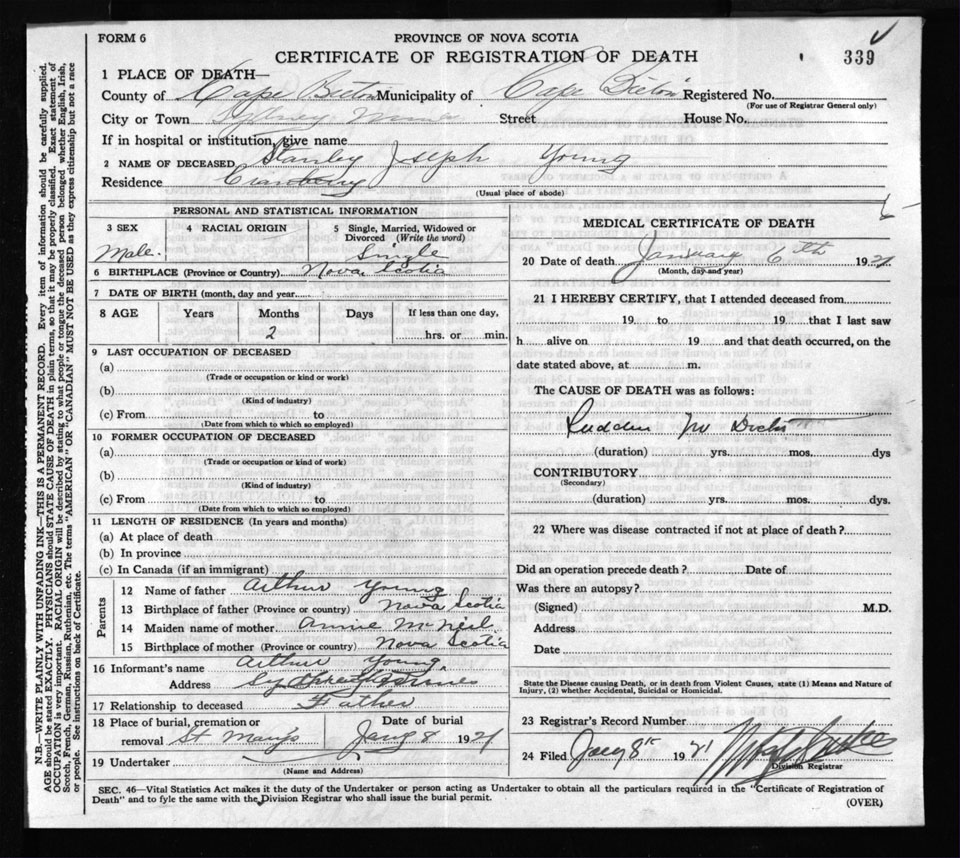 FORM 6
PROVINCE OF NOVA SCOTIA
CERTIFICATE OF REGISTRATION OF DEATH
339
1 PLACE OF DEATH—
County of Cape Breton Municipality of Cape Breton Registered No.
(For use of Registrar General only)
City or Town Sydney Mines Street House No.
If in hospital or institution, give name
2 NAME OF DECEASED Stanley Joseph Young
Residence Cranberry
(Usual place of abode)
PERSONAL AND STATISTICAL INFORMATION
3 SEX Male.
4 RACIAL ORIGIN
5 Single, Married, Widowed or Divorced (Write the word) Single
6 BIRTHPLACE (Province or Country) Nova Scotia
7 DATE OF BIRTH (month, day and year)
8 AGE Years Months Days If less than one day,
2 hrs. or min.
9 LAST OCCUPATION OF DECEASED
(a)
(Trade or occupation or kind or work)
(b)
(Kind of industry)
(c) From to
(Date from which to which so employed)
10 FORMER OCCUPATION OF DECEASED
(a)
(Trade or occupation or kind of work)
(b)
(Kind of industry)
(c) From to
(Date from which to which so employed)
11 LENGTH OF RESIDENCE (In years and months)
(a) At place of death
(b) In province
(c) In Canada (if an immigrant)
Parents
12 Name of father Arthur Young
13 Birthplace of father (Province or country) Nova Scotia
14 Maiden name of mother Annie McNeil
15 Birthplace of mother (Province or country) Nova Scotia
16 Informant's name Arthur Young
Address Sydney Mines
17 Relationship to deceased Father
18 Place of burial, cremation or removal St Mary's
Date of burial Jany 8 1921
19 Undertaker
(Name and Address)
MEDICAL CERTIFICATE OF DEATH
20 Date of death January 6th 1921
(Month, day and year)
21 I HEREBY CERTIFY, that I attended deceased from
19 to 19 that I last saw
h alive on 19 and that death occurred, on the
date stated above, at m.
The CAUSE OF DEATH was as follows:
Sudden No Doctor
(duration) yrs. mos. dys
CONTRIBUTORY
(Secondary)
(duration) yrs. mos. dys.
22 Where was disease contracted if not at place of death?
Did an operation precede death? Date of
Was there an autopsy?
(Signed) M.D.
Address
Date
State the Disease causing Death, or in death from Violent Causes, state (1) Means and Nature of
Injury, (2) whether Accidental, Suicidal or Homicidal.
23 Registrar's Record Number
24 Filed Jany 8th 1921
Division Registrar
SEC. 46—Vital Statistics Act makes it the duty of the Undertaker or person acting as Undertaker to obtain all the particulars required in the "Certificate of Registration of
Death" and to fyle the same with the Division Registrar who shall issue the burial permit.
(OVER)
N.B.—WRITE PLAINLY WITH UNFADING INK—THIS IS A PERMANENT RECORD. Every item of information should be carefully supplied.
AGE should be stated EXACTLY. PHYSICIANS should STATE CAUSE OF DEATH in plain terms, so that it may be properly classified. Exact statement of
OCCUPATION is very important. RACIAL ORIGIN will be described by stating to what people or tongue the deceased person belonged whether English, Irish,
Scotch, French, German, Russian, Ruthenian, etc. The terms "AMERICAN" OR "CANADIAN" MUST NOT BE USED as they express citizenship but not a race
or people. See instructions on back of Certificate.